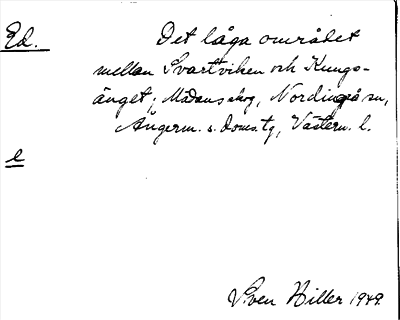 Ed. Det låga området
mellan Svartviken och Kungs-
änget; Mädanskog, Nordingrå sn,
Ångerm. s. doms. tg, Västern. l.
e
Sven Hiller 1949.